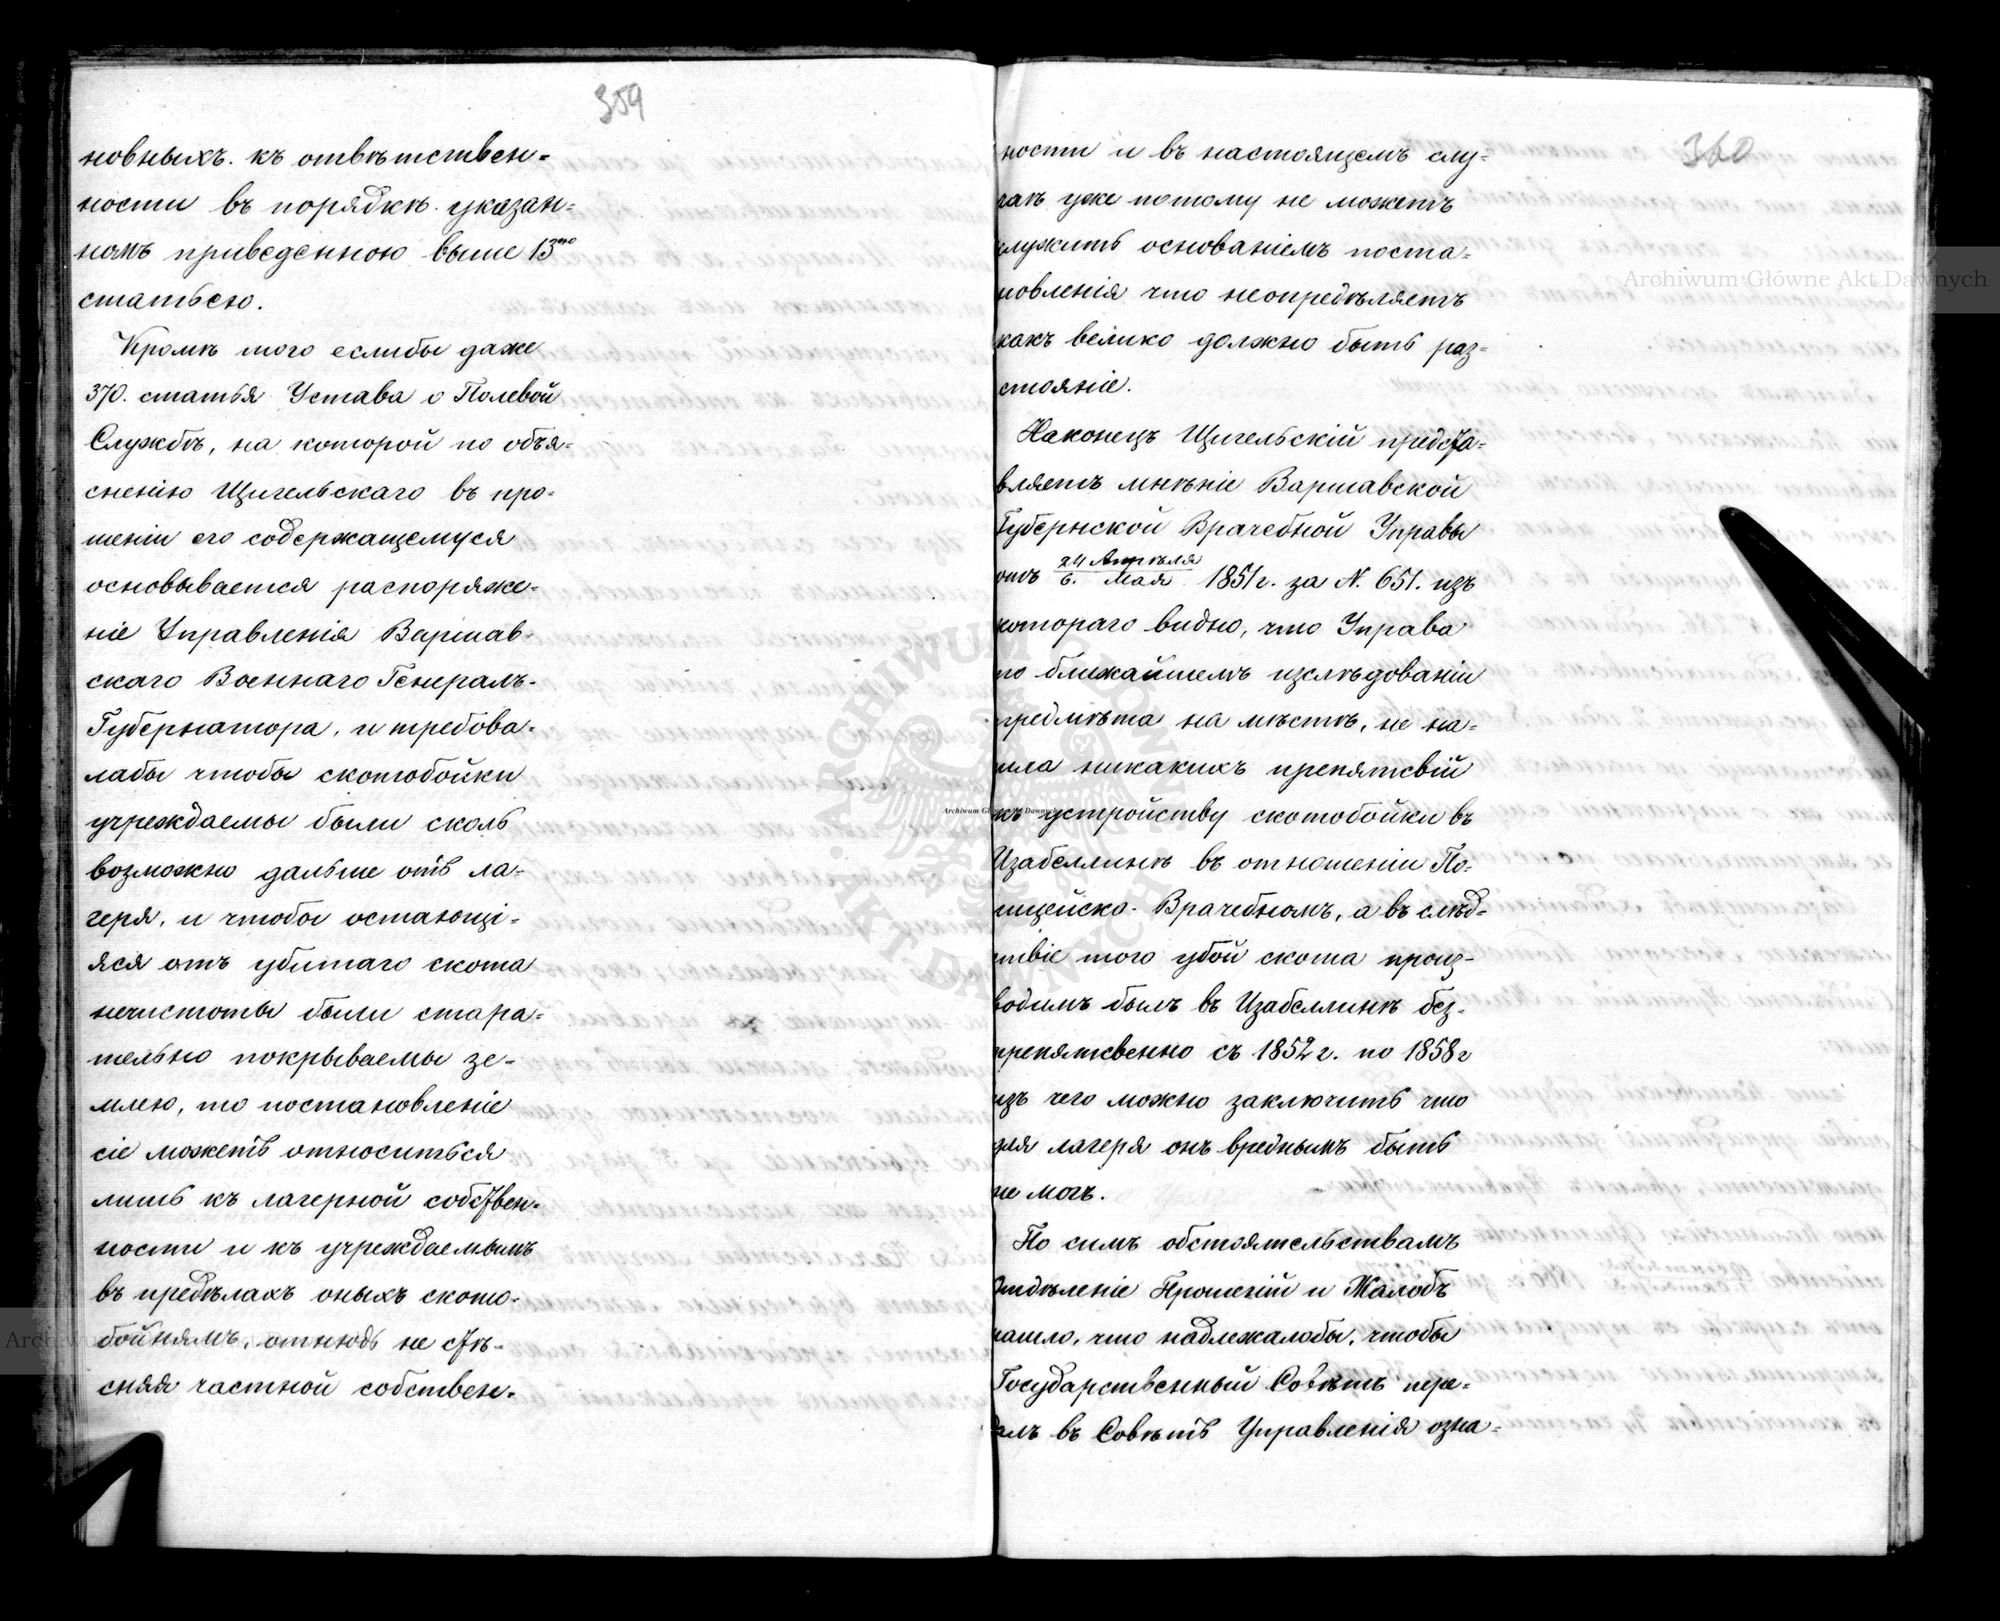 359
новныхъ къ отвѣтствен-
ности въ порядкѣ указан-
номъ приведенною выше 13ою
статьею.
Кромѣ того еслибы даже
370. статья Устава о Полевой
Службѣ, на которой по объя-
сненію Щигельскаго въ про-
шеніи его содержащемуся
основывается распоряже-
ніе Управленія Варшав-
скаго Военнаго Генералъ-
Губернатора, и требова-
лабы чтобы скотобойки
учреждаемы были сколь
возможно дальше отъ ла-
геря, и чтобы остающі-
яся отъ убитаго скота
нечистоты были стара-
тельно покрываемы зе-
млею, то постановленіе
сіе можетъ относиться
лишь къ лагерной собствен-
ности и къ учреждаемымъ
въ предѣлахъ оныхъ ското-
бойнямъ, отнюдь не стѣ-
сняя частной собствен-
360
ности и въ настоящемъ слу-
чаѣ уже потому не можетъ
служить основаніемъ поста-
новленія что неопредѣляетъ
какъ велико должно быть раз-
стояніе.
Наконецъ Щигельскій предста-
вляетъ мнѣніе Варшавской
Губернской Врачебной Управы
отъ 24 Апрѣля / 6. Мая 1851 г. за N. 651. изъ
котораго видно, что Управа
по ближайшемъ изслѣдованіи
предмѣта на мѣстѣ, не на-
шла никакихъ препятсвій
къ устройству скотобойки въ
Изабеллинѣ въ отношеніи По-
лицейско-Врачебномъ, а въ слѣд-
ствіе того убой скота произ-
водимъ былъ въ Изабеллинѣ без-
препятсвенно съ 1852 г. по 1858 г
изъ чего можно заключить что
для лагеря онъ вреднымъ быть
не могъ.
По симъ обстоятельствамъ
Отдѣленіе Прошеній и Жалобъ
нашло, что надлежалобы, чтобы
Государственный Совѣтъ пере-
далъ въ Совѣтъ Управленія озна-
Archiwum Główne Akt Dawnych
Archiwum Główne Akt Dawnych